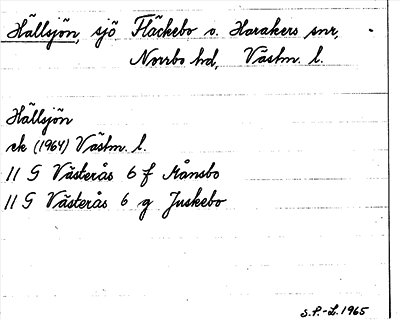 Hällsjön, sjö Fläckebo o. Harakers snr,
Norrbo hd, Västm. l.
Hällsjön
ek (1964) Västm. l.
11 G Västerås 6 f Månsbo
11 G Västerås 6 g Juskebo
S.P.-L. 1965